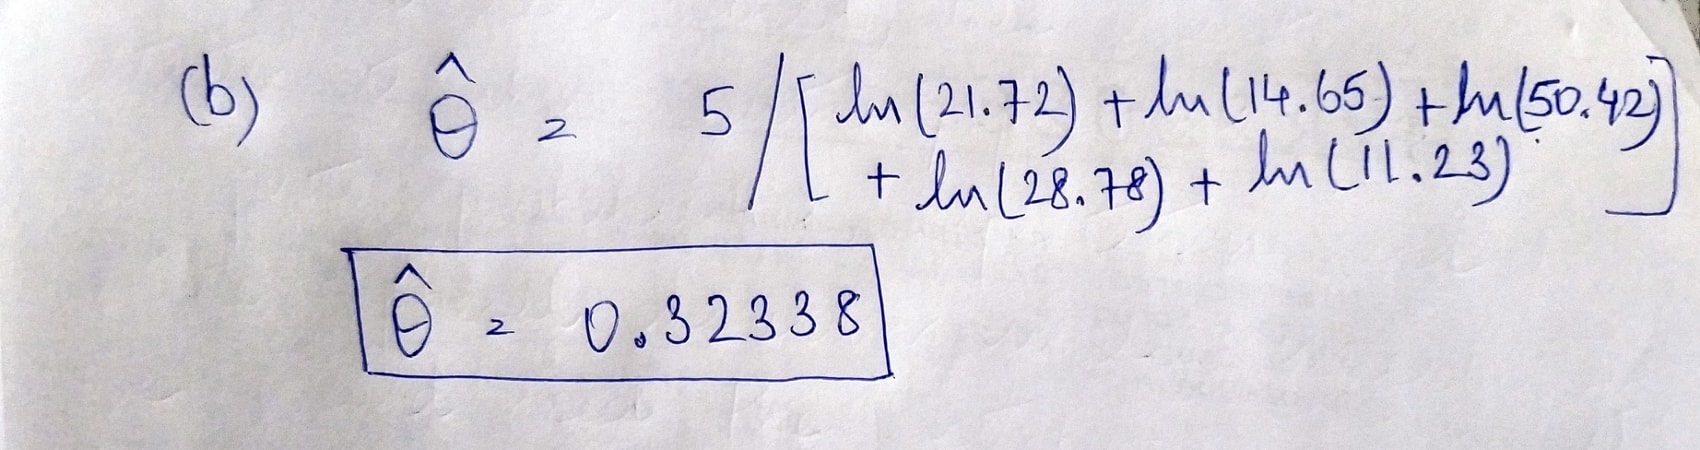 (b) θ̂ = 5/[ln(21.72) + ln(14.65) + ln(50.42)
+ ln(28.78) + ln(11.23)]
θ̂ = 0.32338